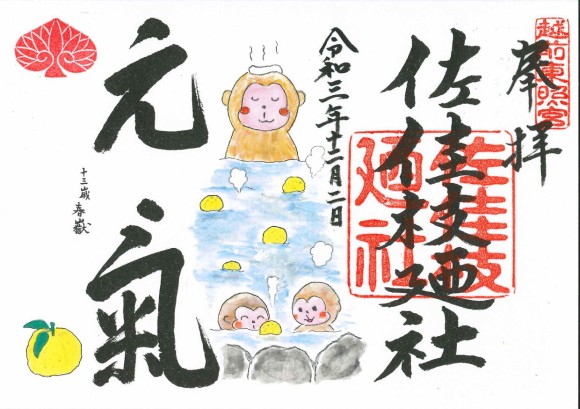 越前東照宮
奉拝
佐佳枝廼社
佐佳枝廼社
令和三年十二月二日
元氣
十三歳 春嶽